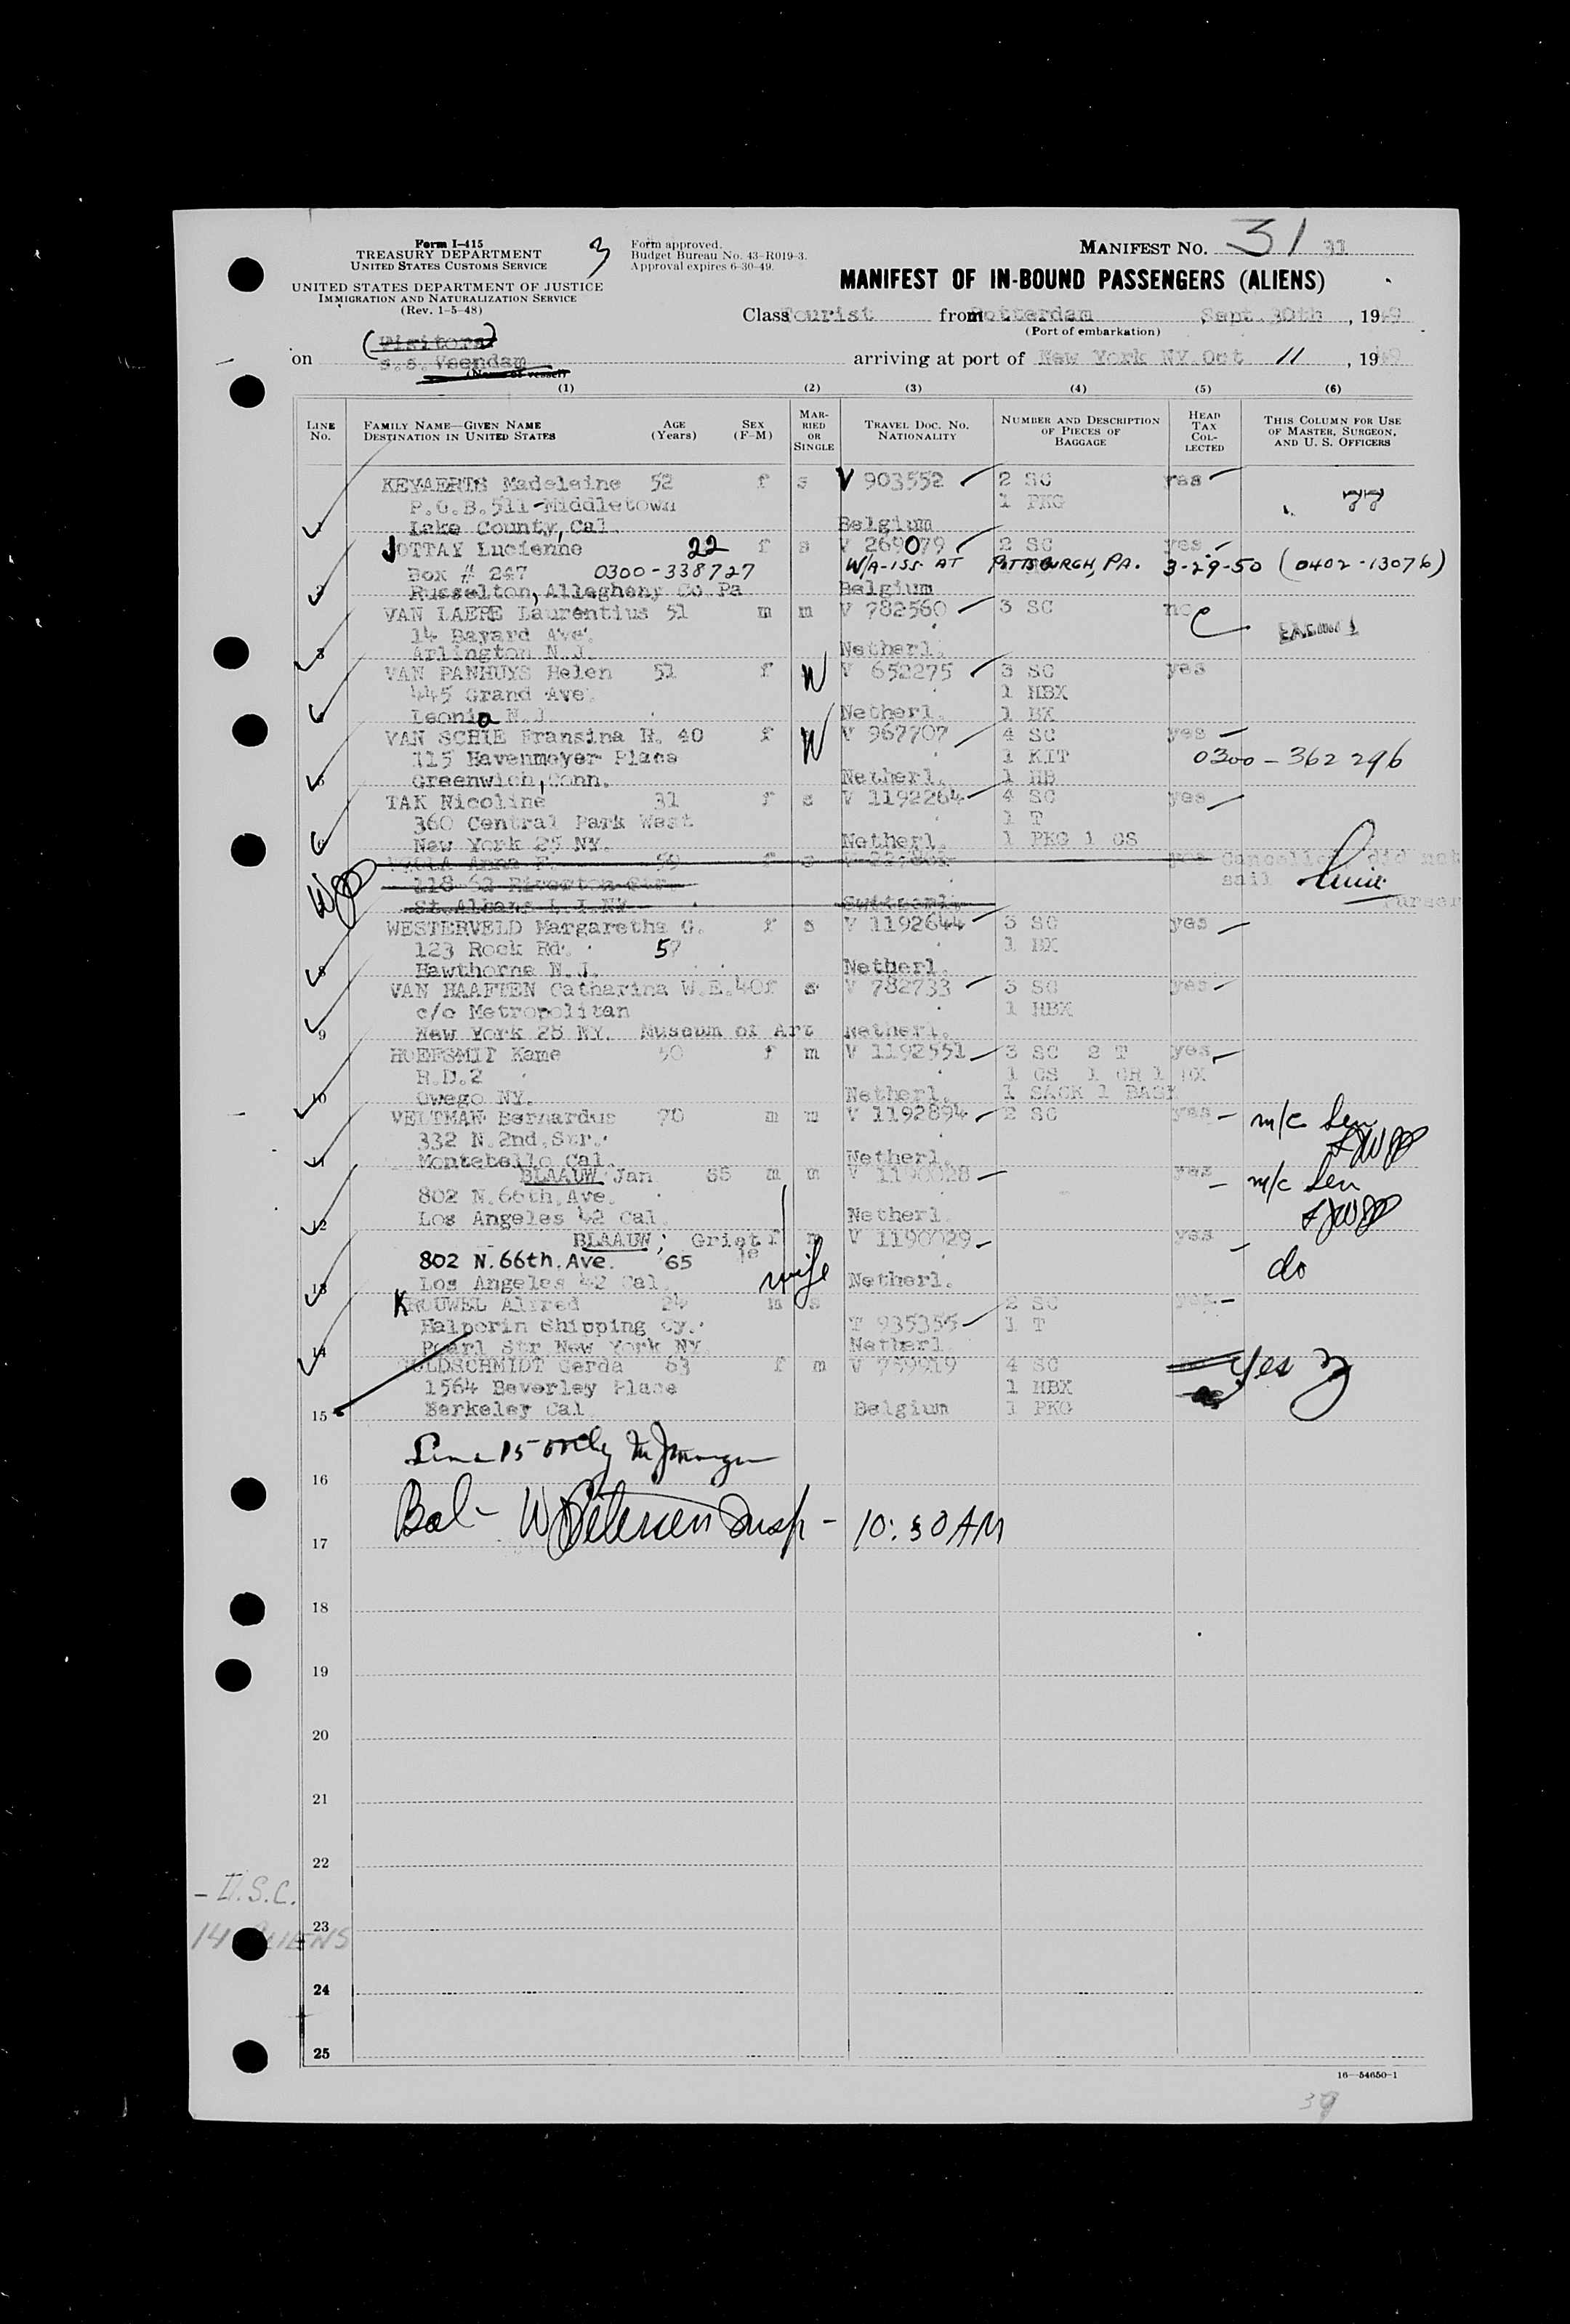 Form I-415
TREASURY DEPARTMENT
UNITED STATES CUSTOMS SERVICE
UNITED STATES DEPARTMENT OF JUSTICE
IMMIGRATION AND NATURALIZATION SERVICE
(Rev. 1-5-48)
3
Form approved.
Budget Bureau No. 43-R019-3.
Approval expires 6-30-49.
MANIFEST NO. 31
MANIFEST OF IN-BOUND PASSENGERS (ALIENS)
Class Tourist from Rotterdam Sept. 30th, 1949
(Port of embarkation)
(Visitors)
on s.s. Veendam arriving at port of New York NY. Oct 11, 1949
(Name of vessel)
(1) (2) (3) (4) (5) (6)
LINE No. FAMILY NAME—GIVEN NAME DESTINATION IN UNITED STATES AGE (Years) SEX (F-M) MARRIED OR SINGLE TRAVEL DOC. NO. NATIONALITY NUMBER AND DESCRIPTION OF PIECES OF BAGGAGE HEAD TAX COLLECTED THIS COLUMN FOR USE OF MASTER, SURGEON, AND U. S. OFFICERS
KEYAERTS Madeleine 52 f s V 903552 2 SC yes
P.O.B. 511-Middletown 1 PKG
1 Lake County, Cal. Belgium
JOTTAY Lucienne 22 f s V 269079 2 SC yes
Box # 247 0300-338727 W/A-ISS. AT PITTSBURGH, PA. 3-29-50 (0402-13076)
2 Russelton, Allegheny Co Pa Belgium
VAN LAERE Laurentius 51 m m V 782560 3 SC no
14 Bayard Ave.
3 Arlington N.J. Netherl.
VAN PANHUYS Helen 51 f W V 652275 3 SC yes
445 Grand Ave. 1 HBX
Leonia N.J. Netherl. 1 BX
VAN SCHIE Fransina H. 40 f W V 967707 4 SC yes
115 Havenmeyer Place 1 KIT 0300-362296
5 Greenwich, Conn. Netherl. 1 HB
TAK Nicoline 31 f s V 1192264 4 SC yes
360 Central Park West 1 T
6 New York 25 NY. Netherl. 1 PKG 1 CS
Anna F. 59 f s yes Cancelled did not
sail
St. Albans L.I. NY. Switzerl. Purser
WESTERVELD Margaretha G. f s V 1192644 3 SC yes
123 Rock Rd. 57 1 BX
8 Hawthorne N.J. Netherl.
VAN HAAFTEN Catharina W.E. 40 f s V 782733 3 SC yes
c/o Metropolitan 1 HBX
9 New York 28 NY. Museum of Art Netherl.
HOEFSMIT Kame f m V 1192551 3 SC 2 T yes
R.D.2 1 CS 1 CR 1 BX
10 Owego NY. Netherl. 1 SACK 1 BASK
VELTMAN Bernardus 70 m m V 1192894 2 SC yes m/c Sen
332 N. 2nd. Str.
11 Montebello Cal. Netherl.
BLAAUW Jan 65 m m V 1190028 yes m/c Sen
802 N. 66th. Ave.
12 Los Angeles 42 Cal. Netherl.
BLAAUW; Grietje f m V 1190029 yes
802 N. 66th. Ave. 65 wife do
13 Los Angeles 42 Cal. Netherl.
KROUWEL Alfred 24 m s 2 SC yes
Halperin Shipping Cy. T 935355 1 T
14 Pearl Str New York NY. Netherl.
GOLDSCHMIDT Gerda 63 f m V 789919 4 SC yes
1564 Beverley Place 1 HBX
15 Berkeley Cal Belgium 1 PKG
Line 15 only
16
Bal- W Petersen Insp - 10:30 AM
17
18
19
20
21
22
- U.S.C.
23
14 ALIENS
24
25
16—54650-1
39